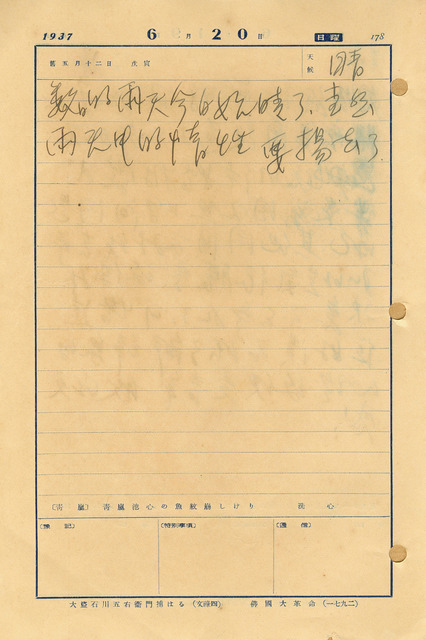 1937 6月20日 日曜 178
舊五月十二日 戊寅 天候 晴
数日的雨天今日始晴了、
雨天中的惰性要揚去了
〔靑嵐〕 靑嵐池心の魚紋崩しけり 洗心
〔豫記〕 〔特別事項〕 〔通信〕
大盜石川五右衛門捕はる (文祿四) 佛國大革命 (一七九二)